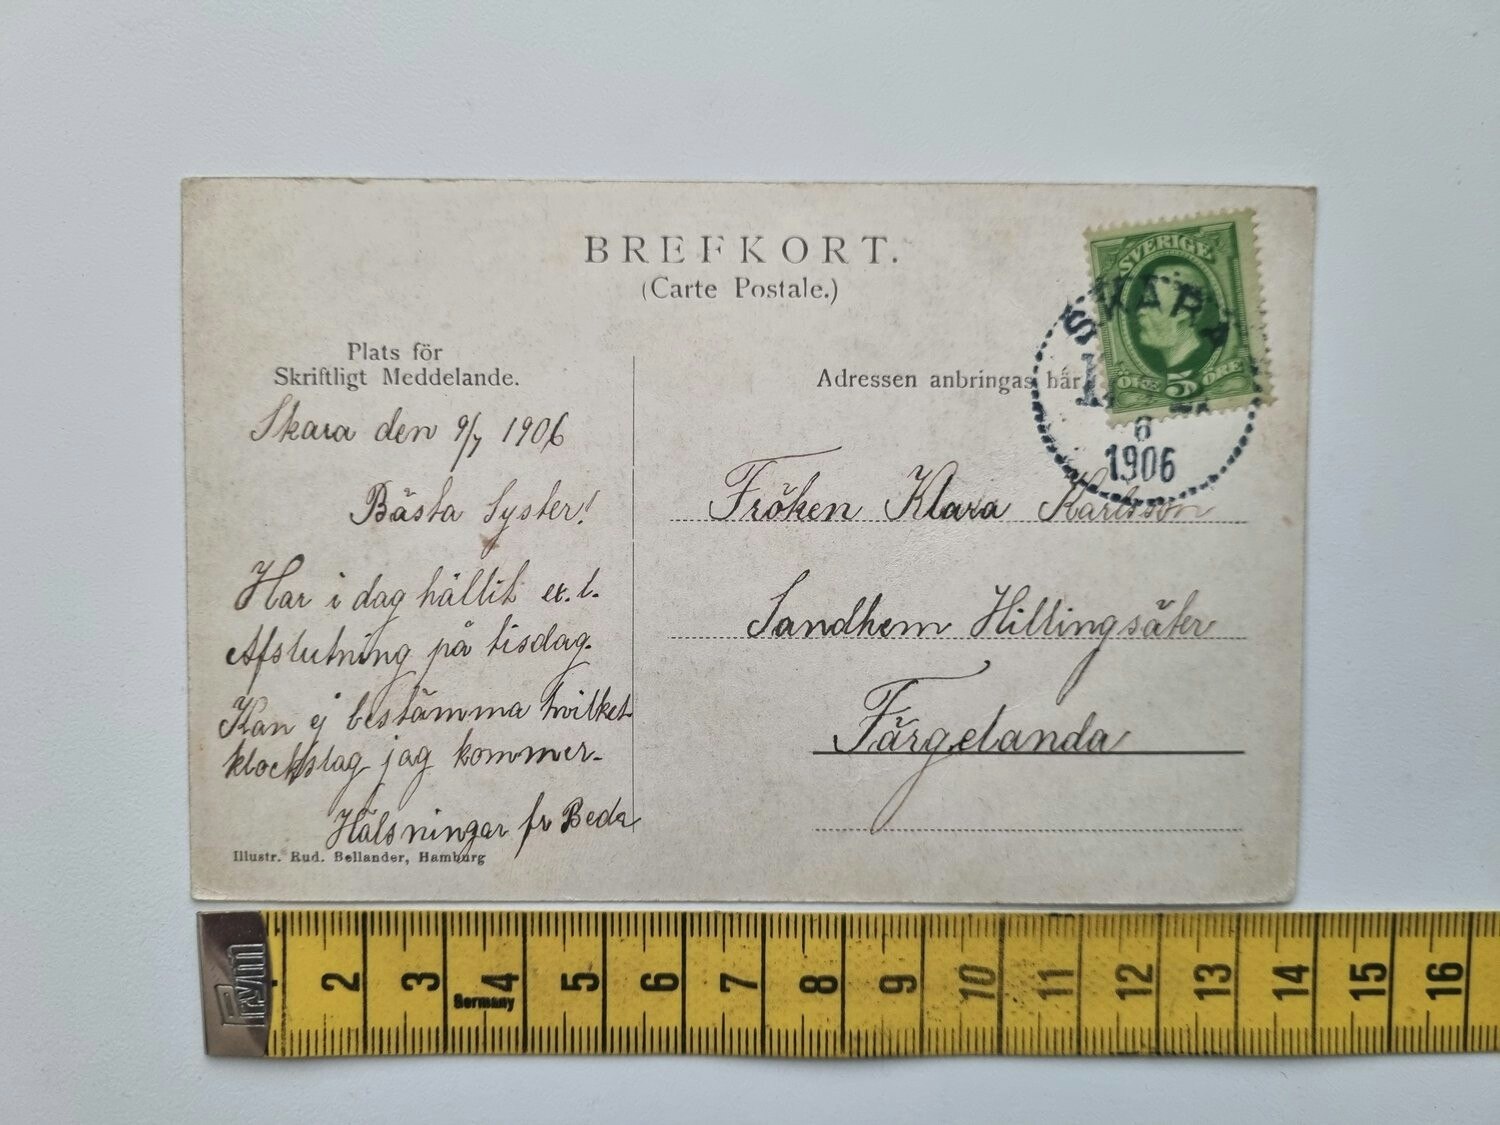 BREFKORT.
(Carte Postale.)
Plats för
Skriftligt Meddelande.
Skara den 9/7 1906
Bästa Syster!
Har i dag hållit ex. t.
Afslutning på tisdag.
Kan ej bestämma hvilket
klockslag jag kommer.
Hälsningar fr Beda
Illustr. Rud. Bellander, Hamburg
SVERIGE
ÖRE 5 ÖRE
SKARA
6
1906
Adressen anbringas här
Fröken Klara Karlsson
Sandhem Hillingsäter
Färgelanda
Prym
2 3 4 5 6 7 8 9 10 11 12 13 14 15 16
Germany